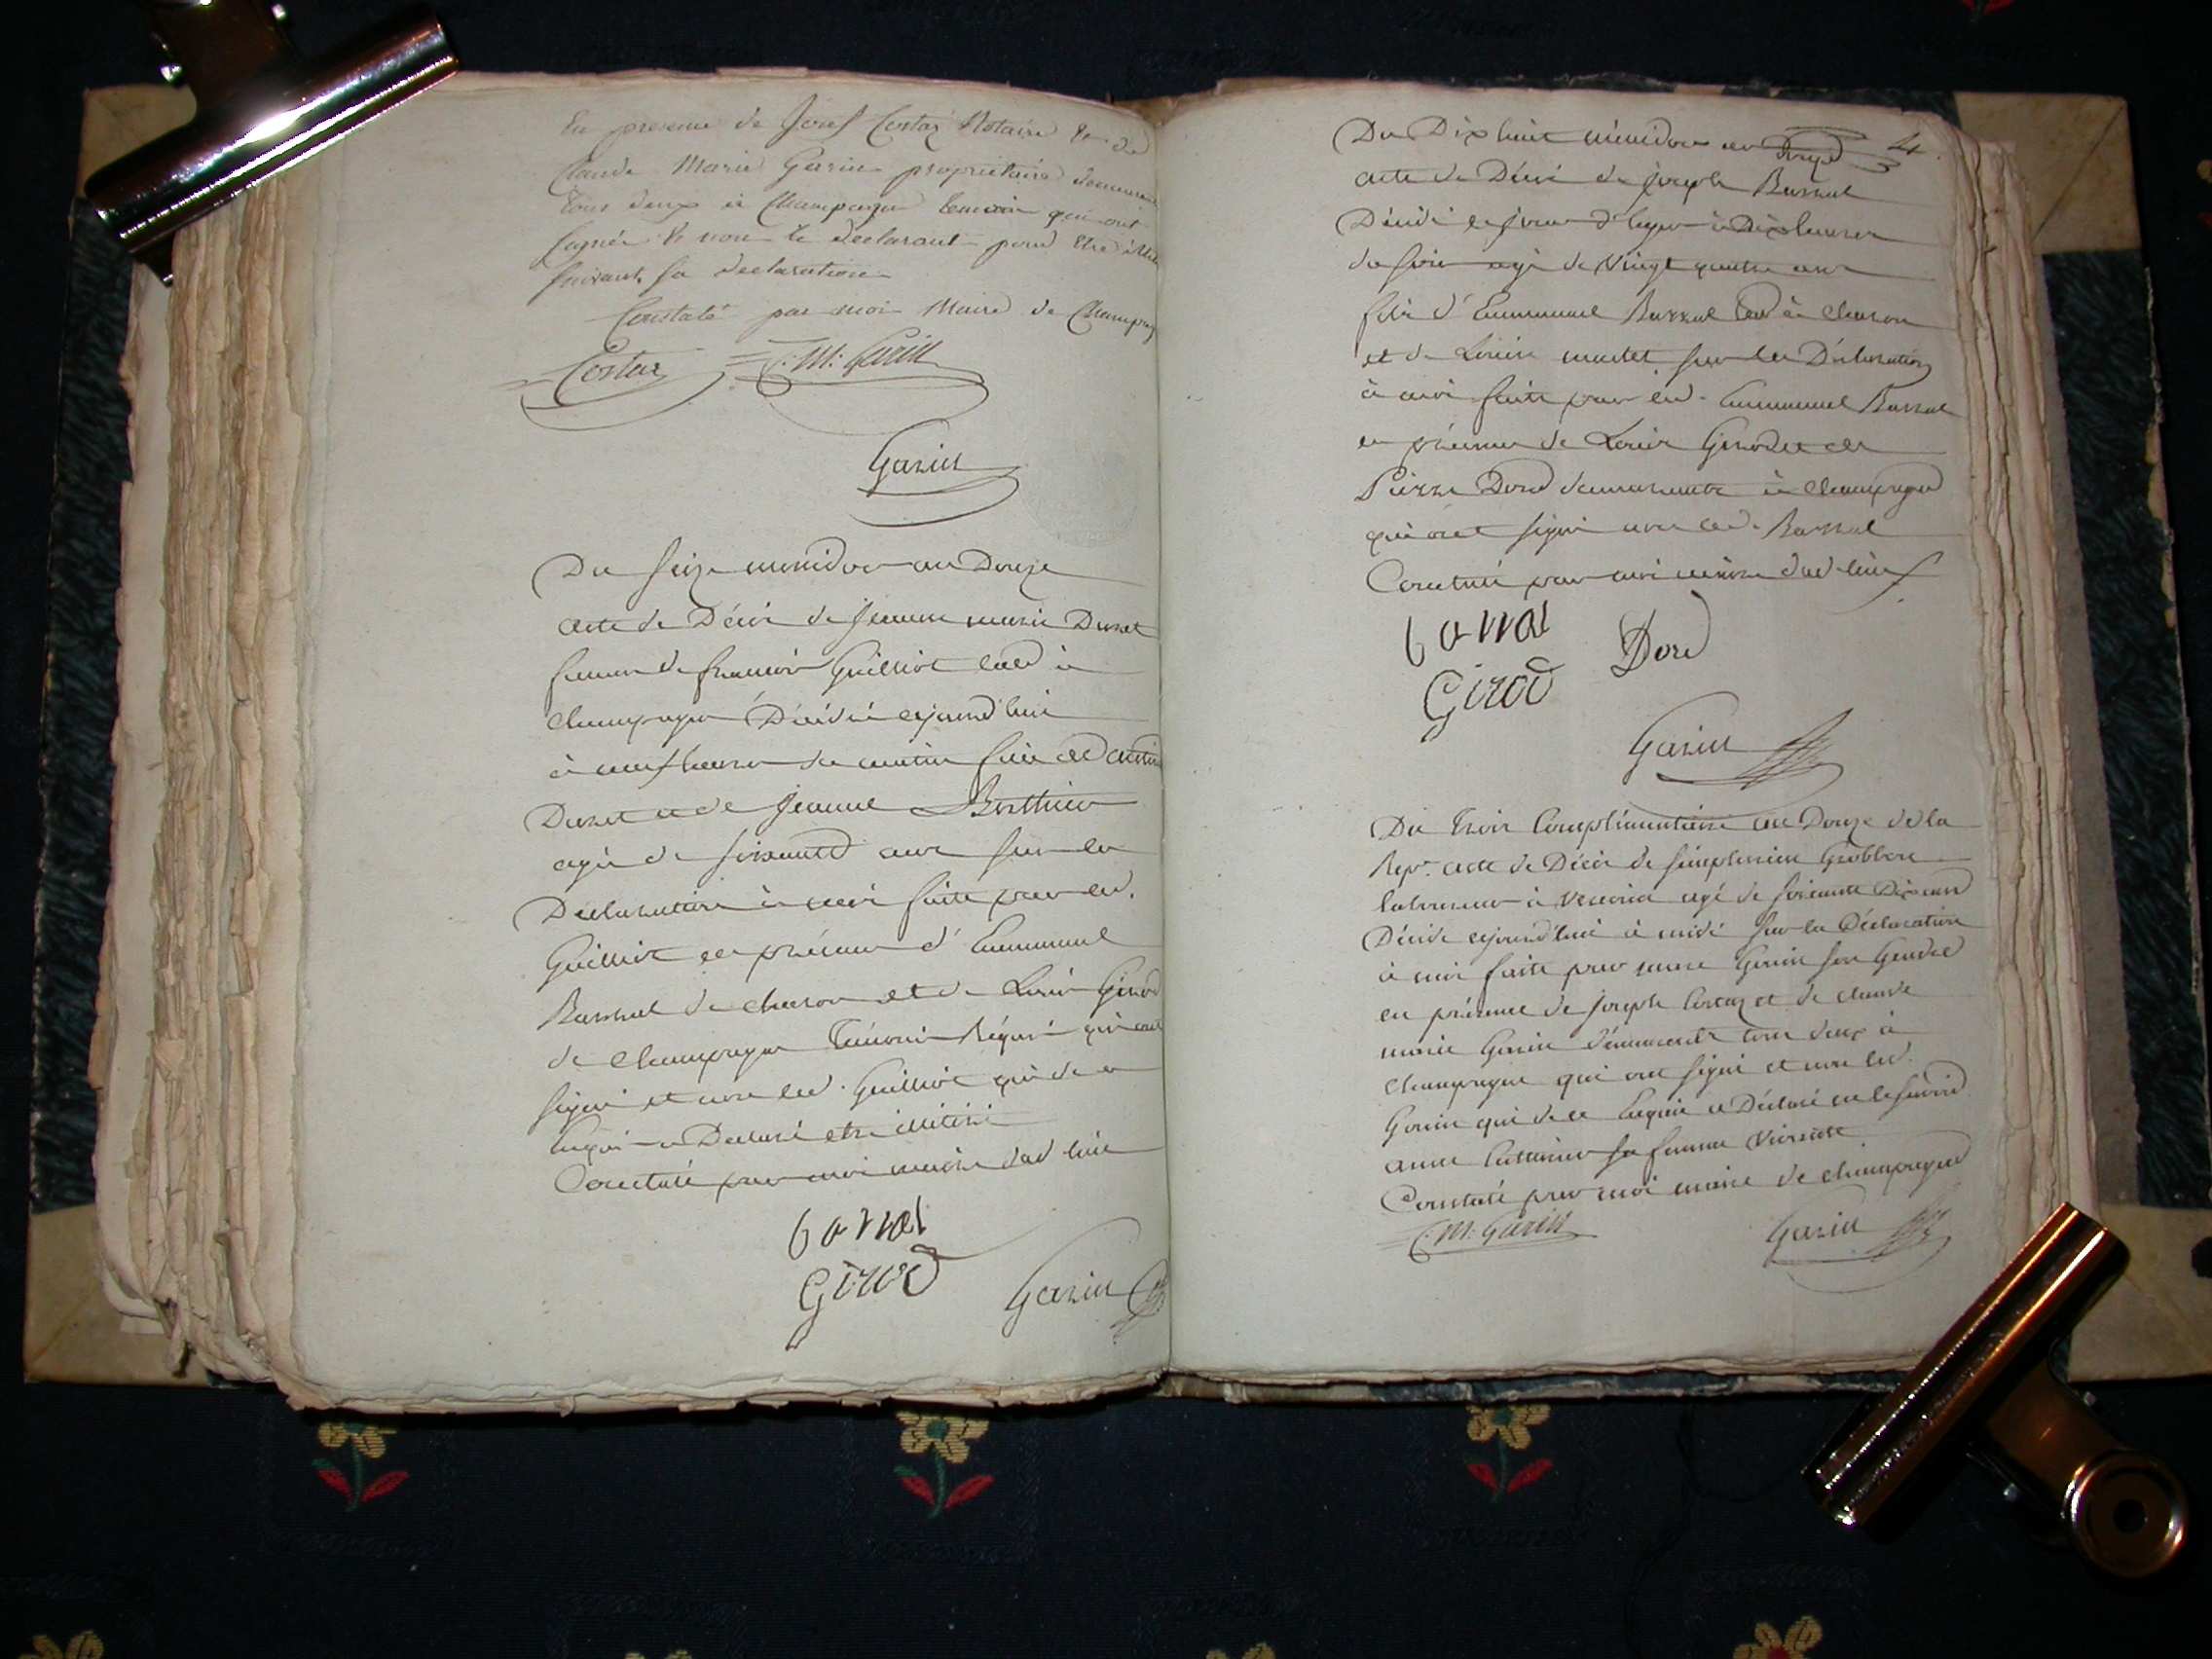 En presence de Josef Costaz Notaire et de
Claude Marie Garin propriétaire demeurant
tous deux à Champagne temoin qui ont
signés et non le declarant pour etre illité
suivant sa declaration
Constaté par moi Maire de Champag
Costaz C: M: Garin
Garin
Du seize messidor an Douze
acte de Décès de jeanne marie Duret
femme de françois Guilliot lab à
champagne Décédée ejourd'hui
à neuf heures du matin fille de
Duret et de jeanne Berthier
agée de soixante ans sur la
Déclaration à moi faite par led.
Guilliot en présence d'Emmanuel
Barral de charon et de Louis Girod
de champagne Témoins Réquis qui ont
signé et non led. Guilliot qui de ce
Enquis a Declaré etre illitéré
Constaté par moi maire dud lieu
barral
Girod Garin
4
Du Dix huit messidor an Douze
acte de Décès de joseph Barral
Décédé le jour d'hyer à Dix heures
du soir agé de Vingt quatre ans
fils d'Emmanuel Barral lab à charon
et de Louise martel sur la Déclaration
à moi faite par led. Emmanuel Barral
en présence de Louis Girod et de
Pierre Dord demeurants à champagne
qui ont signé avec led. Barral
Constaté par moi maire dud lieu
barral Dord
Girod
Garin
Du trois Complémentaire an Douze de la
Rep.e acte de Décès de simphorien
laboureur à agé de soixante Dix ans
Décédé ejourd'hui à midi sur la Déclaration
à moi faite par Gonin son Gendre
en présence de joseph Costaz et de claude
marie Garin demeurants tous deux à
champagne qui ont signé et non led.
Gonin qui de ce Enquis a Déclaré ne le savoir
anne sa femme Vivante
Constaté par moi maire de champagne
C: M: Garin Garin